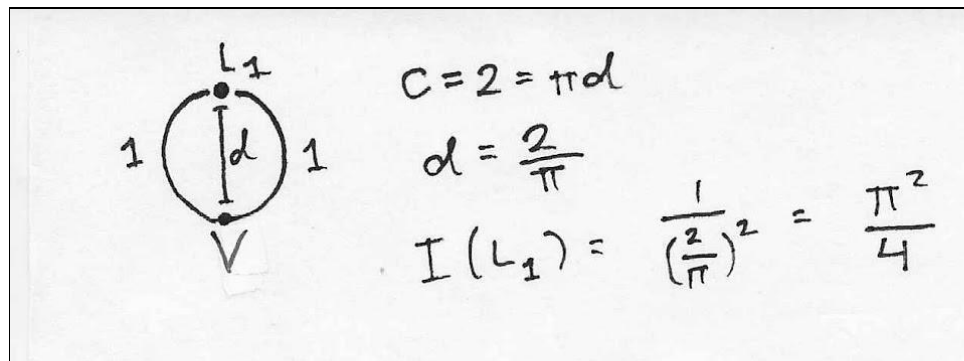 L₁
1 d 1
V
C = 2 = πd
d = 2/π
I(L₁) = 1/(2/π)² = π²/4